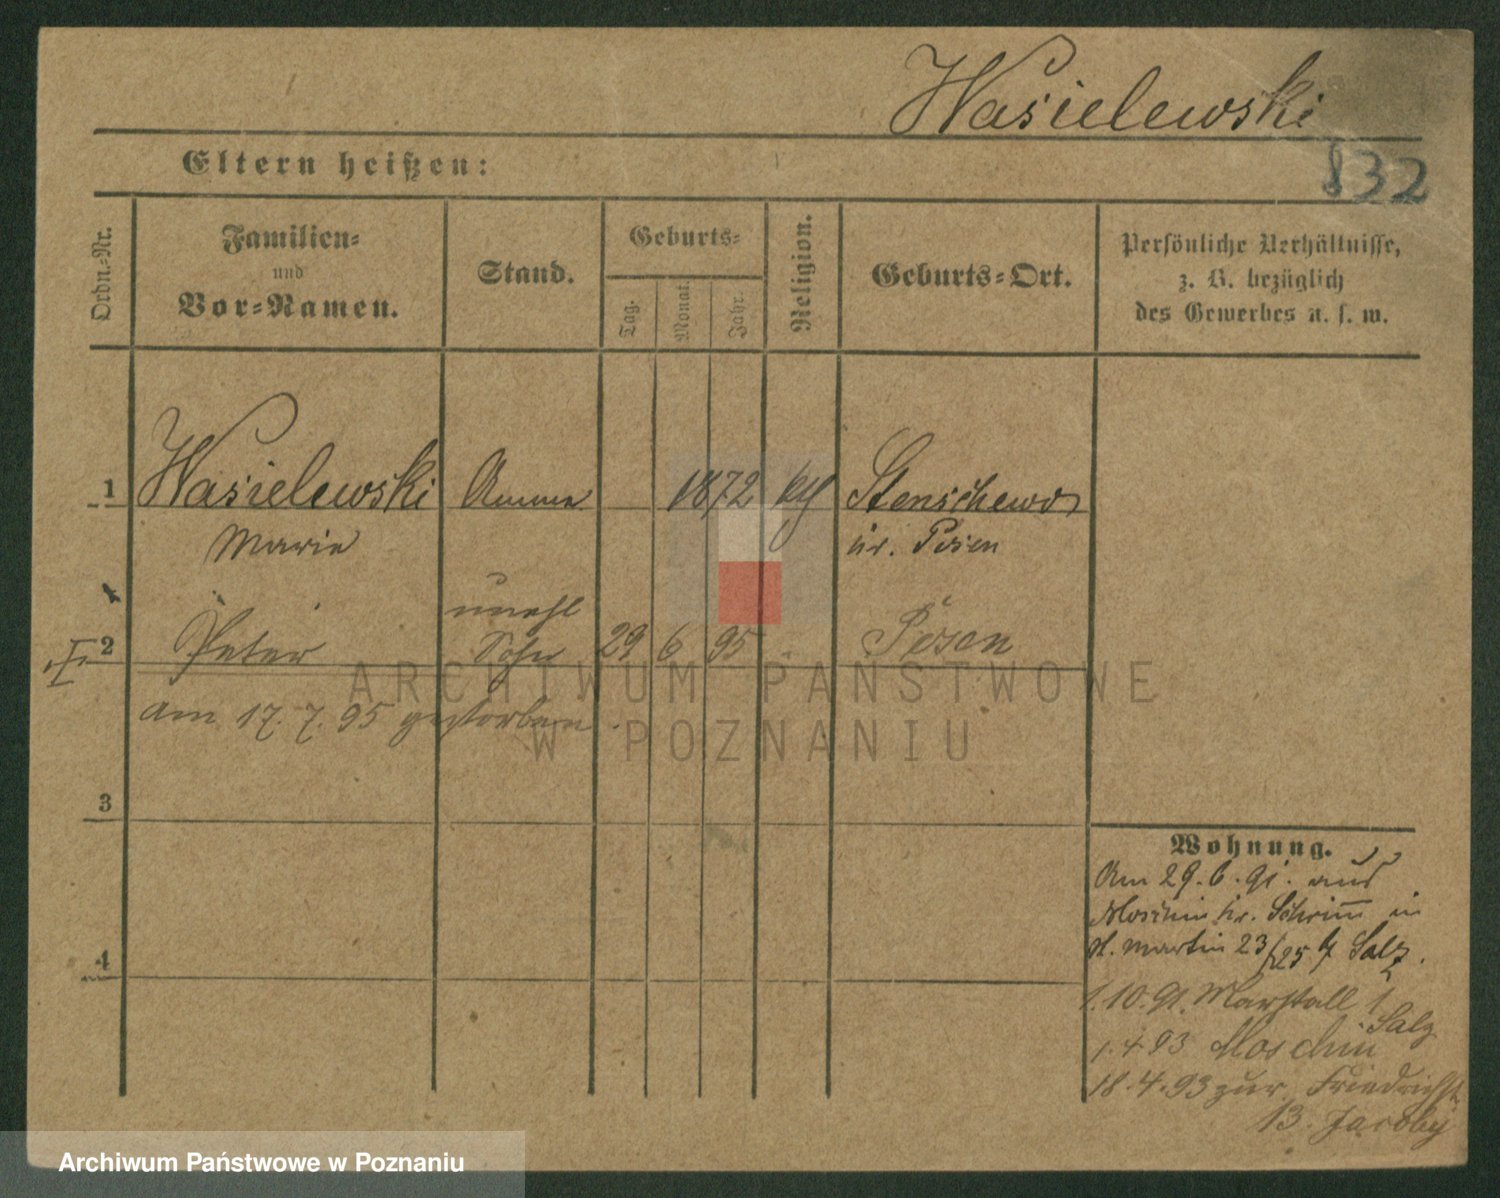 Wasielewski
832
Eltern heißen:
Ordn.-Nr.
Familien-
und
Vor-Namen.
Stand.
Geburts-
Tag.
Monat.
Jahr.
Religion.
Geburts-Ort.
Persönliche Verhältnisse,
z. B. bezüglich
des Gewerbes u. s. w.
1 Wasielewski Amme 1872 Stenschewo
Marie kr. Posen
unehl
2 Peter Sohn 29 6 95 Posen
am 17. 7. 95 gestorben.
3
4
Wohnung.
Am 29. 6. 91. aus
Moschin kr. Schrimm in
St. Martin 23/25 b/ Salz.
1. 10. 91. Marstall 1
Salz
1. 4 93 Moschin
18. 4. 93 zur Friedrichstr.
13. Jacoby
ARCHIWUM PAŃSTWOWE
W POZNANIU
Archiwum Państwowe w Poznaniu